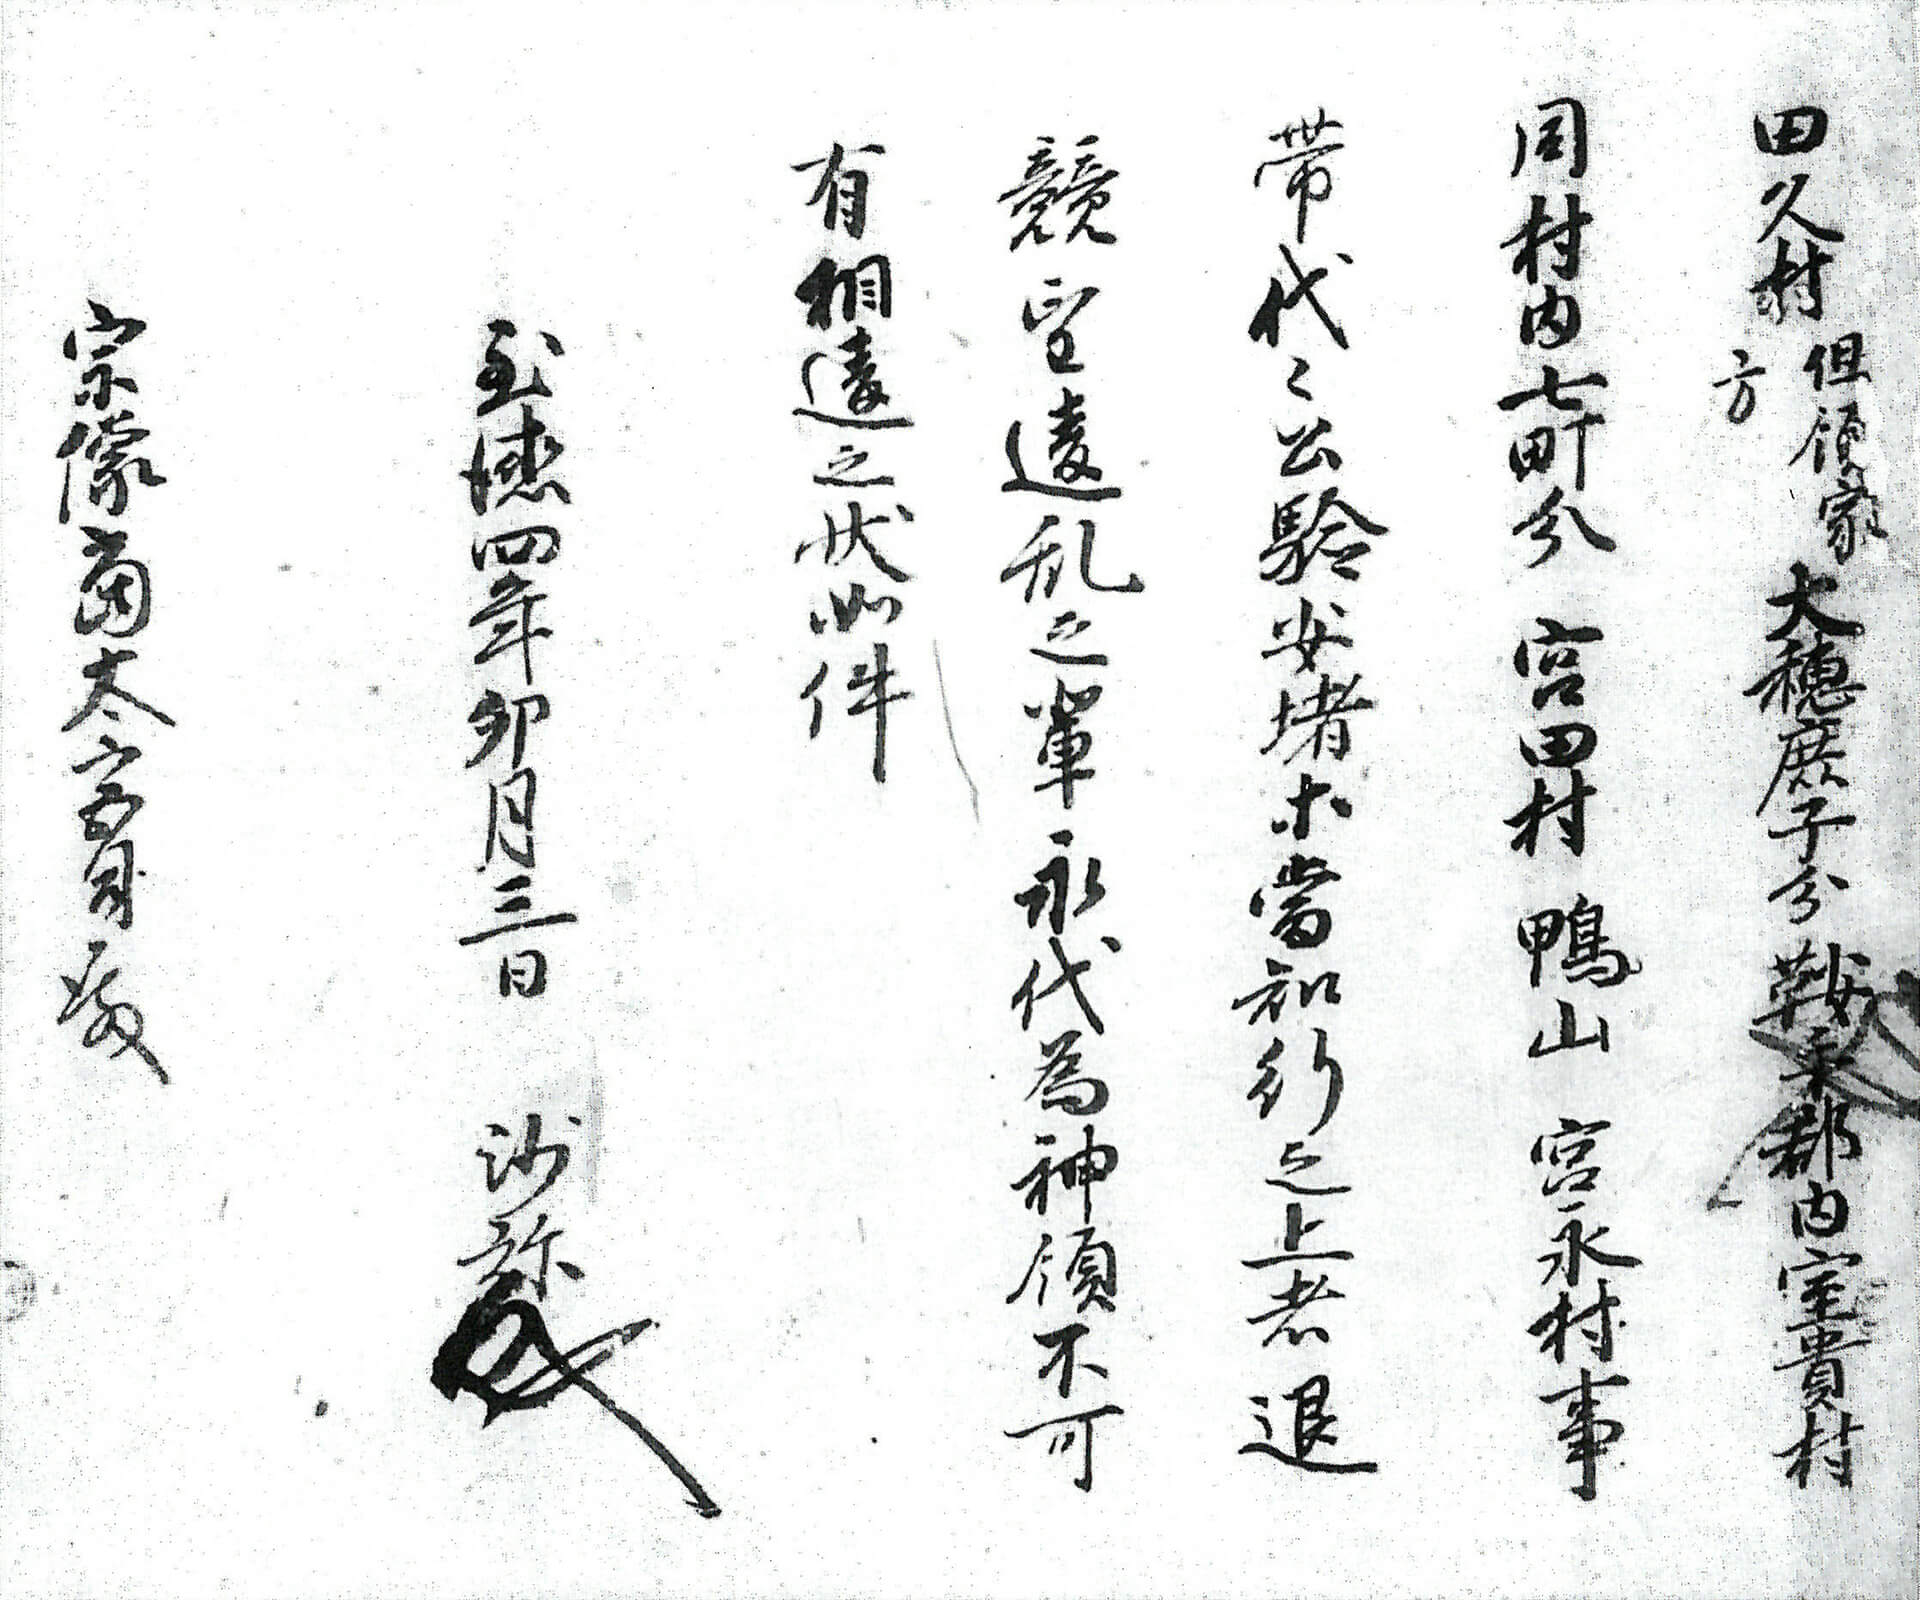 田久村但領家方 大穂庶子分 鞍手郡内室貴村
同村内七町分 宮田村 鴨山 宮永村事
帯代々公験安堵等當知行之上者退
競望違乱之輩永代為神領不可
有相違之状如件
至徳四年卯月三日 沙弥
宗像前大宮司殿